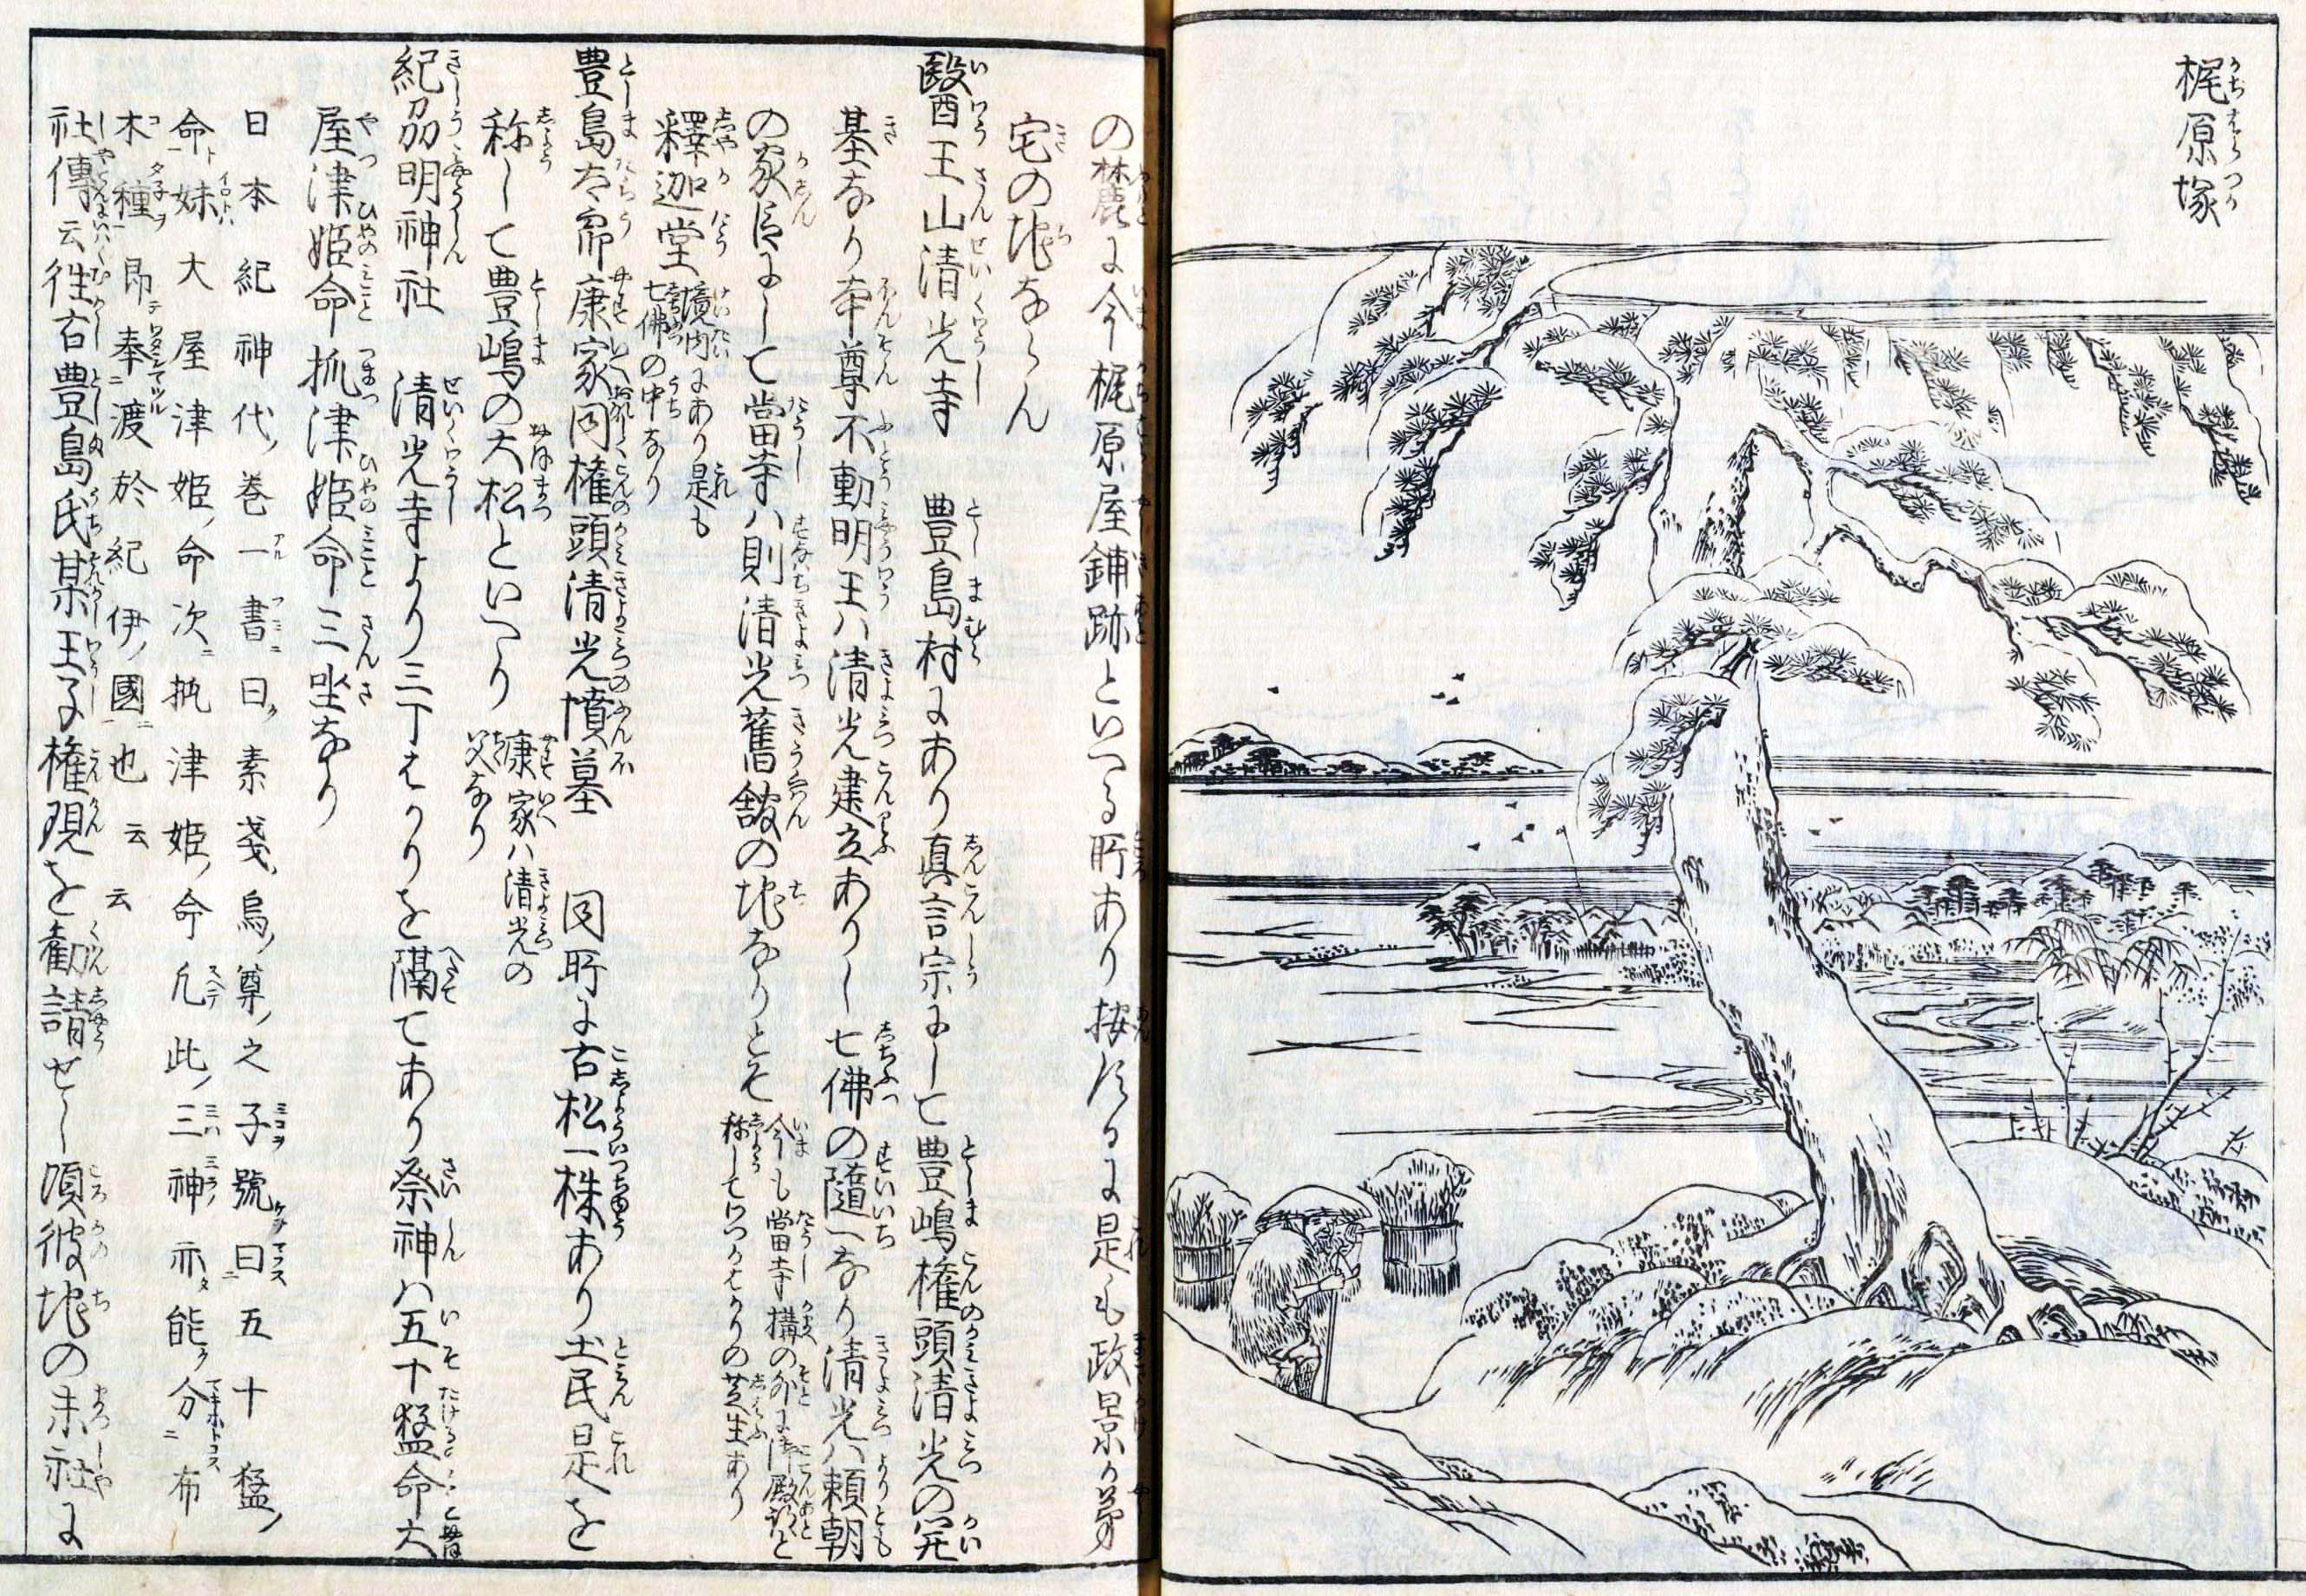 梶原塚
の麓に今梶原屋鋪跡といへる所あり按るに是も政景か弟
宅の地ならん
醫王山清光寺 豊島村にあり真言宗にして豊嶋権頭清光の開
基なり本尊不動明王ハ清光建立ありし七佛の随一なり清光ハ頼朝
の家臣にして當寺ハ則清光舊舘の地なりとそ
今も當寺構の外に御殿跡と
称してわつかはかりの芝生あり
釋迦堂
境内にあり是も
七佛の中なり
豊島太郎康家同権頭清光墳墓 同所に古松一株あり土民是を
称して豊嶋の大松といへり
康家ハ清光の
父なり
紀州明神社 清光寺より三丁はかりを隔てあり祭神ハ五十猛命大
屋津姫命抓津姫命三坐なり
日本紀神代巻一書曰素戔烏尊之子號曰五十猛
命妹大屋津姫命次抓津姫命凡此三神亦能分布
木種即奉渡於紀伊國也云云
社傳云往古豊島氏某王子権現を勧請せし頃彼地の末社に